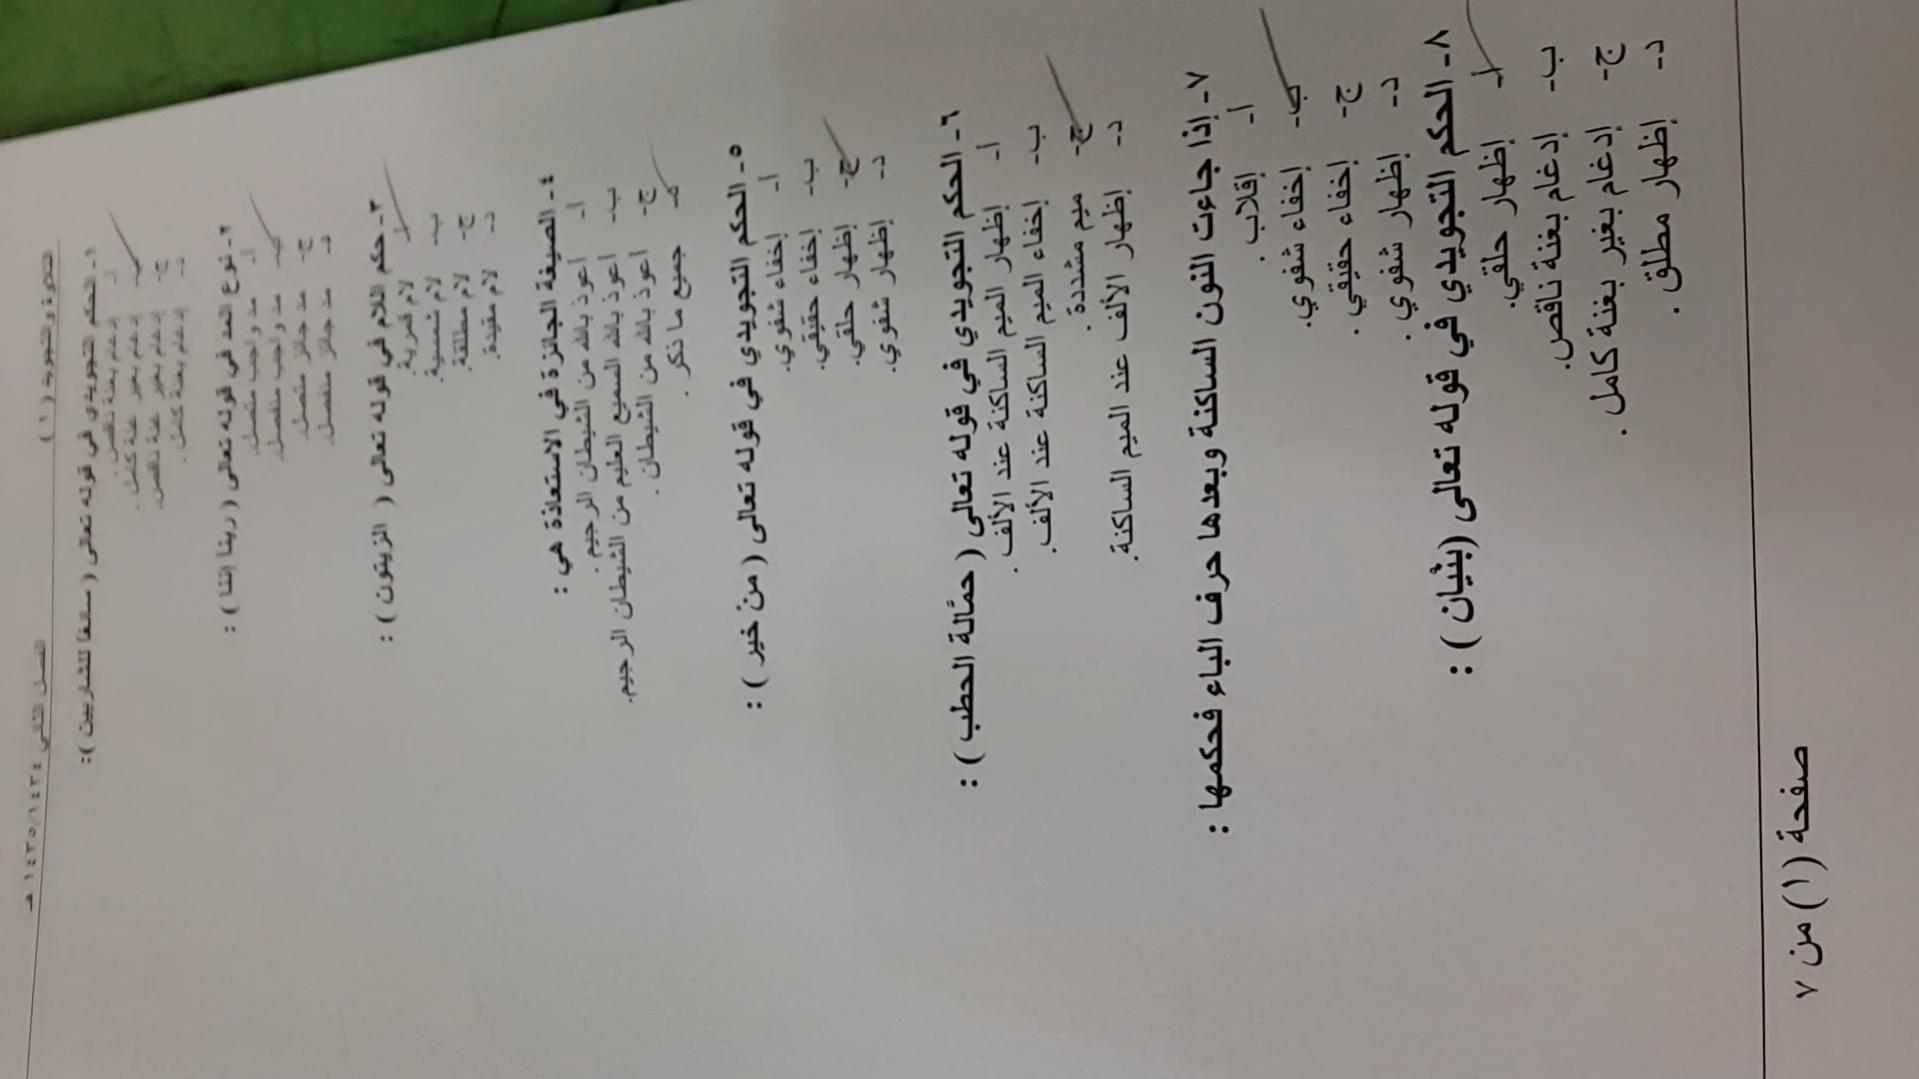 التلاوة والتجويد (١) الفصل الثاني ١٤٣٥/١٤٣٤ هـ
١- الحكم التجويدي في قوله تعالى ( سائغا للشاربين ):
أ- إدغام بغنة ناقص.
ب- إدغام بغير غنة كامل.
ج- إدغام بغير غنة ناقص.
د- إدغام بغنة كامل.
٢- نوع المد في قوله تعالى ( ربنا إننا ) :
أ- مد واجب متصل.
ب- مد واجب منفصل.
ج- مد جائز متصل.
د- مد جائز منفصل.
٣- حكم اللام في قوله تعالى ( الزيتون ) :
أ- لام قمرية.
ب- لام شمسية.
ج- لام مطلقة.
د- لام مقيدة.
٤- الصيغة الجائزة في الاستعاذة هي :
أ- أعوذ بالله من الشيطان الرجيم .
ب- أعوذ بالله السميع العليم من الشيطان الرجيم.
ج- أعوذ بالله من الشيطان .
د- جميع ما ذكر .
٥- الحكم التجويدي في قوله تعالى ( منْ خير ) :
أ- إخفاء شفوي.
ب- إخفاء حقيقي.
ج- إظهار حلقي.
د- إظهار شفوي.
٦- الحكم التجويدي في قوله تعالى ( حمَّالة الحطب ) :
أ- إظهار الميم الساكنة عند الألف .
ب- إخفاء الميم الساكنة عند الألف.
ج- ميم مشددة .
د- إظهار الألف عند الميم الساكنة.
٧- إذا جاءت النون الساكنة وبعدها حرف الباء فحكمها :
أ- إقلاب .
ب- إخفاء شفوي.
ج- إخفاء حقيقي .
د- إظهار شفوي .
٨- الحكم التجويدي في قوله تعالى (بنْيان ) :
أ- إظهار حلقي.
ب- إدغام بغنة ناقص.
ج- إدغام بغير بغنة كامل .
د- إظهار مطلق .
صفحة (١) من ٧